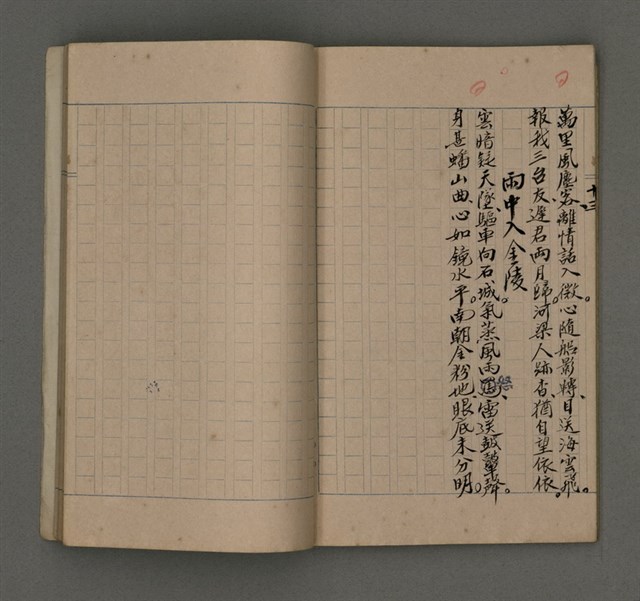 十三
萬里風塵客、離情話入微。心隨船影轉、目送海雲飛。
報我三台友、遲君兩月歸。河梁人跡杳、猶自望依依。
雨中入金陵
雲暗疑天墜、驅車向石城。氣蒸風雨、雷送鼓鼙聲。
身甚蟠山曲、心如鏡水平。南朝金粉地、眼底未分明。